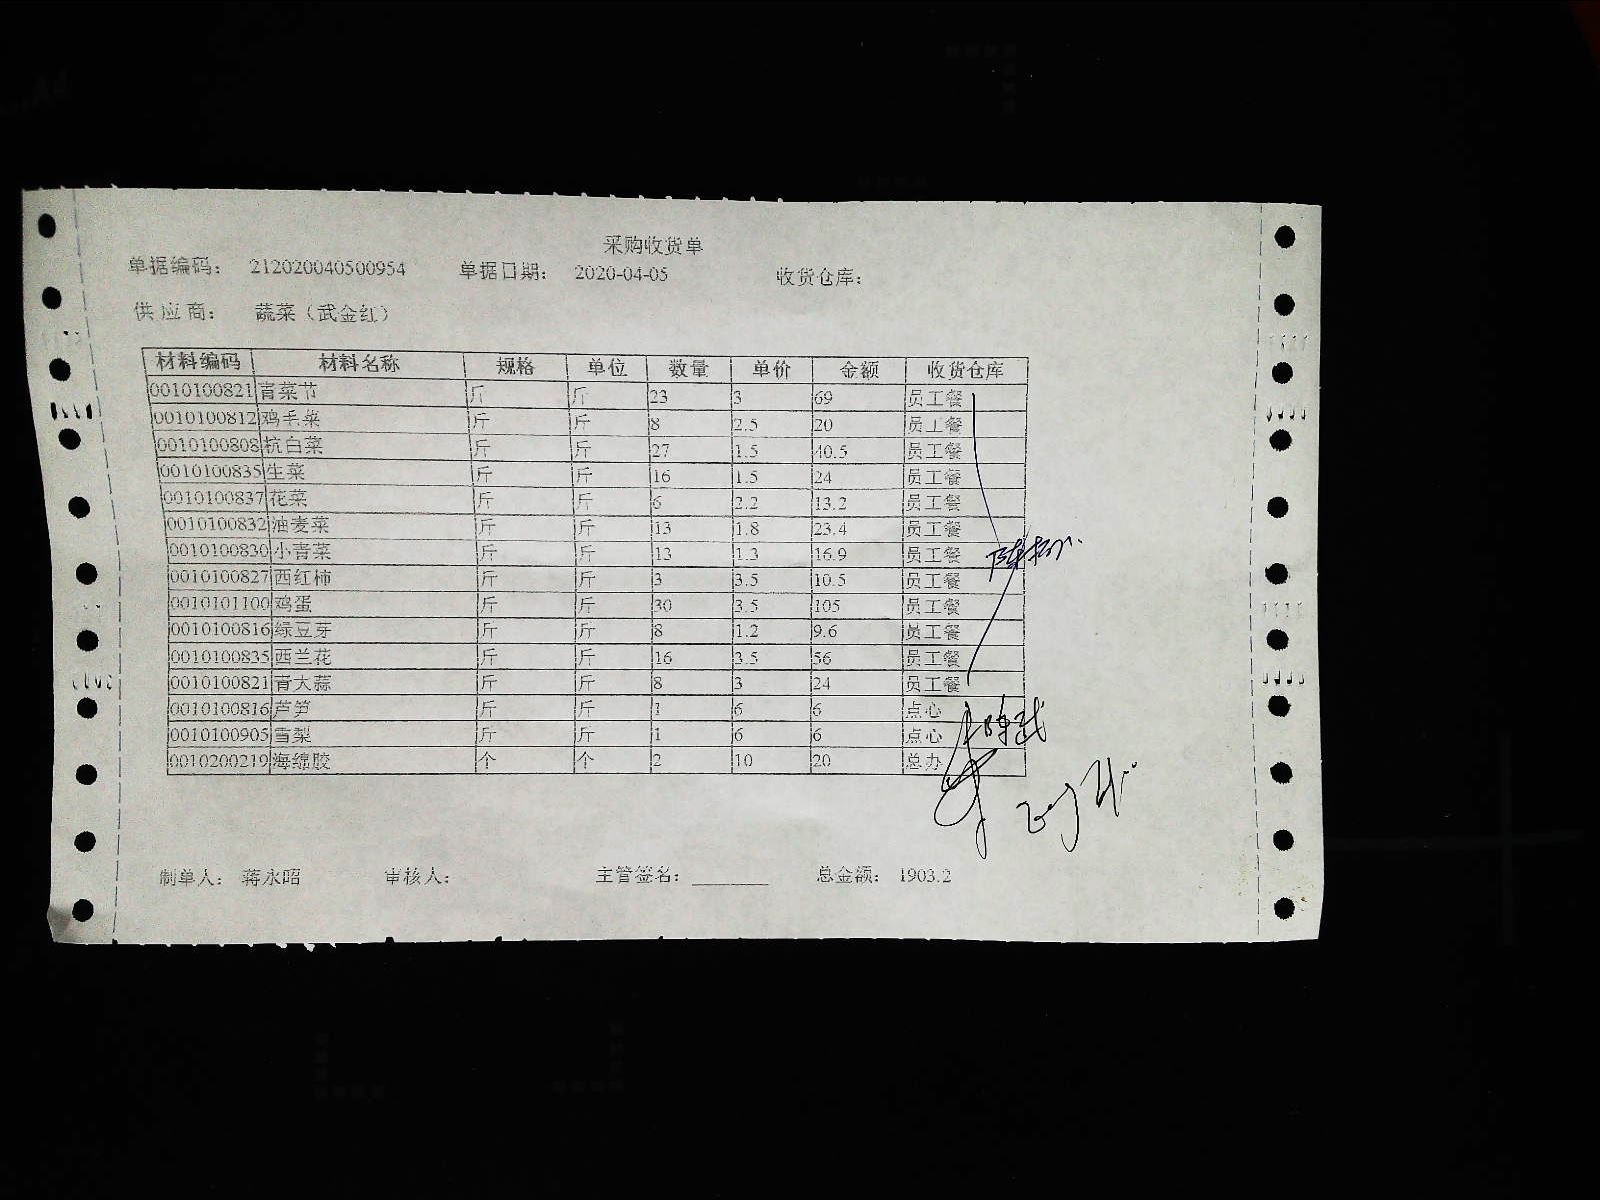 采购收货单
单据编码： 212020040500954 单据日期： 2020-04-05 收货仓库：
供应商： 蔬菜（武金红）
材料编码 材料名称 规格 单位 数量 单价 金额 收货仓库
0010100821 青菜节 斤 斤 23 3 69 员工餐
0010100812 鸡毛菜 斤 斤 8 2.5 20 员工餐
0010100808 杭白菜 斤 斤 27 1.5 40.5 员工餐
0010100835 生菜 斤 斤 16 1.5 24 员工餐
0010100837 花菜 斤 斤 6 2.2 13.2 员工餐
0010100832 油麦菜 斤 斤 13 1.8 23.4 员工餐
0010100830 小青菜 斤 斤 13 1.3 16.9 员工餐
0010100827 西红柿 斤 斤 3 3.5 10.5 员工餐
0010101100 鸡蛋 斤 斤 30 3.5 105 员工餐
0010100816 绿豆芽 斤 斤 8 1.2 9.6 员工餐
0010100835 西兰花 斤 斤 16 3.5 56 员工餐
0010100821 青大蒜 斤 斤 8 3 24 员工餐
0010100816 芦笋 斤 斤 1 6 6 点心
0010100905 雪梨 斤 斤 1 6 6 点心
0010200219 海绵胶 个 个 2 10 20 总办
制单人： 蒋永昭 审核人： 主管签名： 总金额： 1903.2